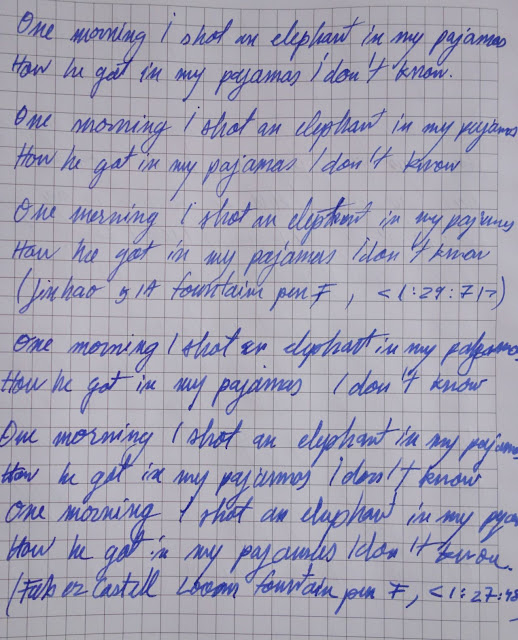 One morning i shot an elephant in my pajamas
How he got in my pajamas I don't know.
One morning I shot an elephant in my pajamas
How he got in my pajamas I don't know
One merning I shot an elephant in my pajamas
How he got in my pajamas I don't know
(Jinhao 51A fountain pen F, <1:29:71>)
One morning I shot an elephant in my pajamas
How he got in my pajamas I don't know
One morning I shot an elephant in my pajamas
How he got in my pajamas I don't know
One morning I shot an elephant in my pajam
How he got in my pajamas I don't know.
(Faber Castell Loom fountain pen F, <1:27:48